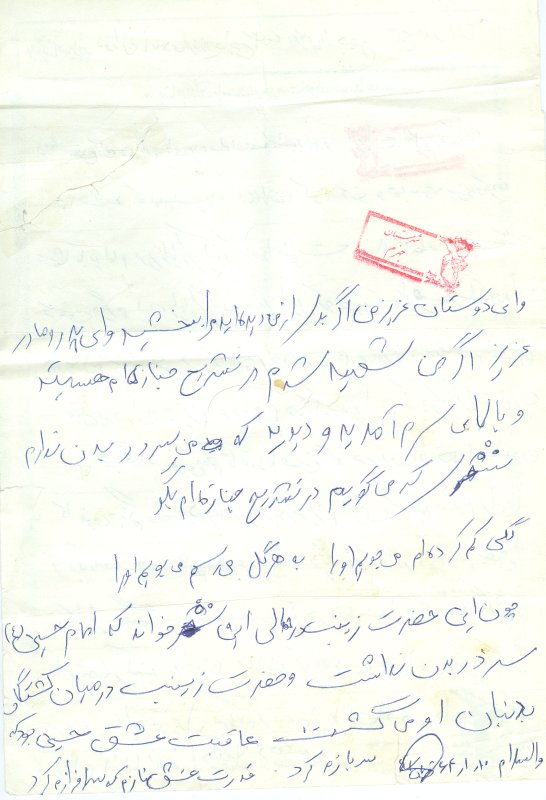 شهرستان
جهرم
وای دوستان عزیز من اگر بدی از من دیده‌اید مرا ببخشید وای پدر و مادر
عزیز اگر من شهید شدم در تشییع جنازه‌ام هستید
و بالای سرم آمدید و دیدید که من سر در بدن ندارم
شعر که می‌گویم در تشییع جنازه‌ام بگو
گلی گم کرده‌ام می‌جویم او را به هر گل می‌رسم می‌بویم او را
چون این حضرت زینب در حالی این شعر خواند که امام حسین (ع)
سر در بدن نداشت و حضرت زینب در میان کشتگان
بدنبان او می‌گشت عاقبت عشق حسین بود که
سربازم کرد قدرت عشق نازم که سرافرازم کرد
والسلام